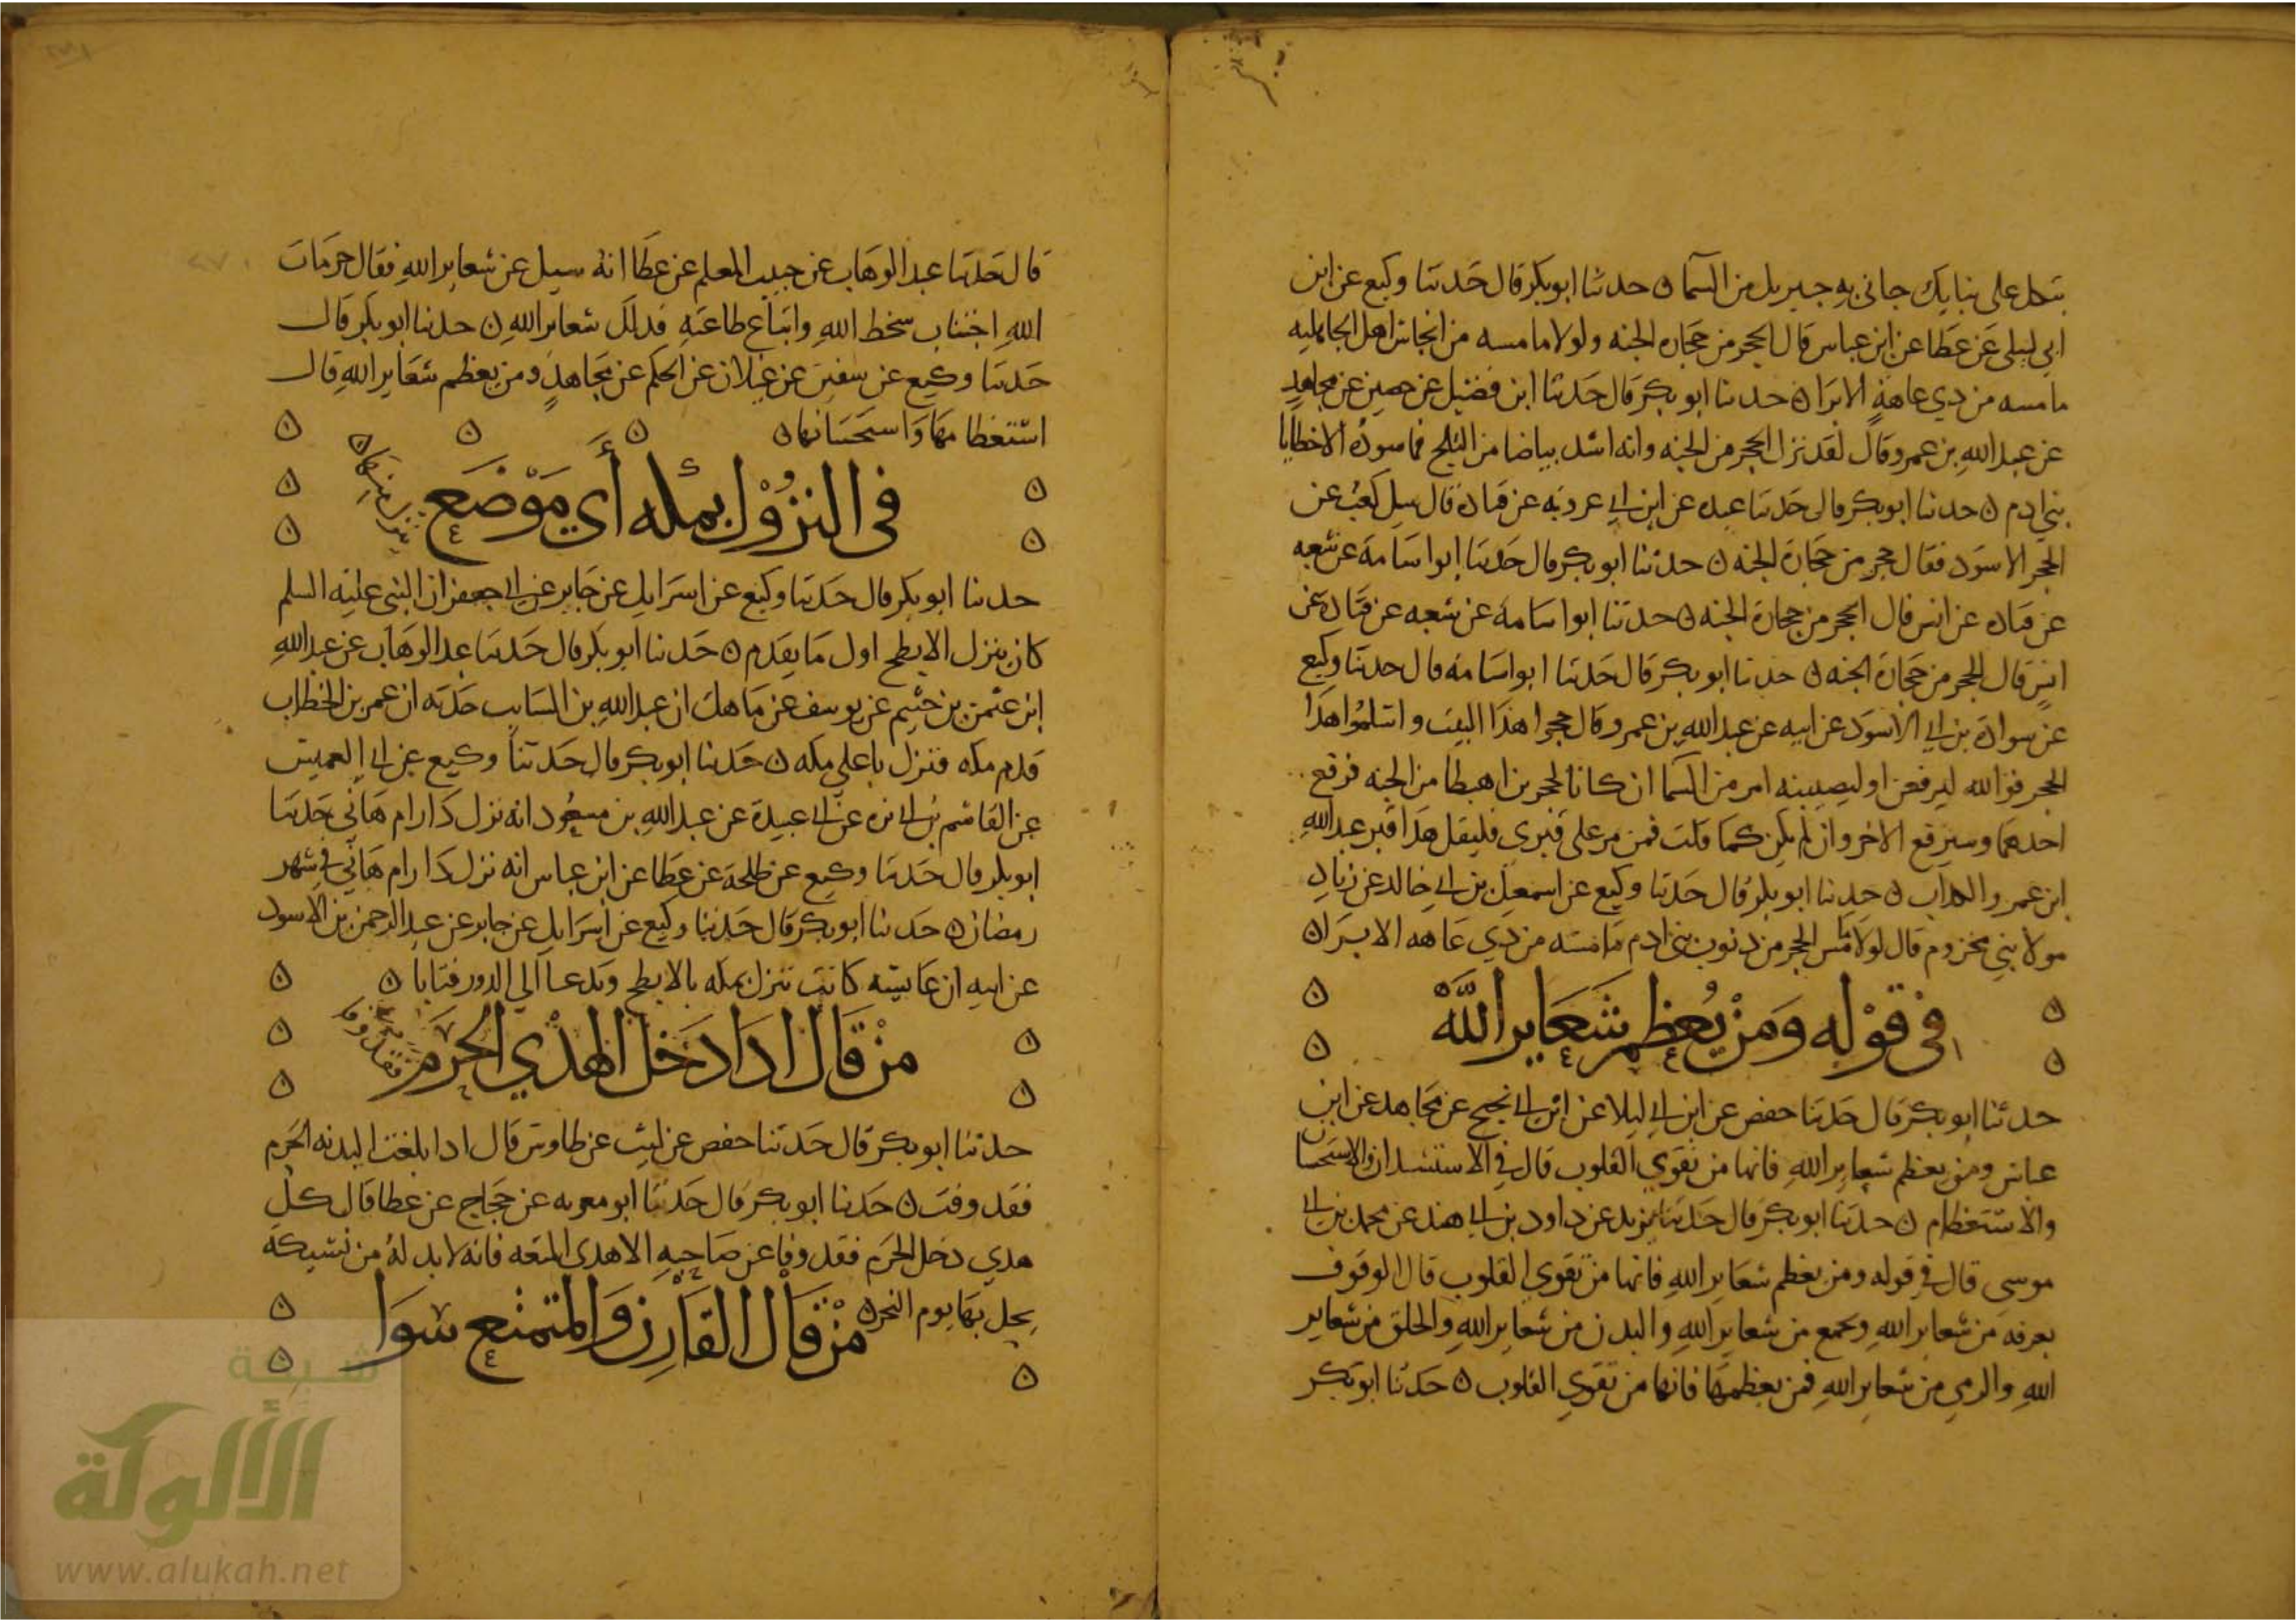 يتكل على بنايك جاني به جبريل من السما ن حدثنا ابو بكر قال حدثنا وكيع عن ابن
ابي ليلى عن عطا عن ابن عباس قال الحجر من حجاره الجنه ولولا ما مسه من انجاس اهل الجاهليه
ما مسه من ذي عاهة الا برا ن حدثنا ابو بكر قال حدثنا ابن فضيل عن حصين عن مجاهد
عن عبد الله بن عمرو قال لقد نزل الحجر من الجنه وانه اشد بياضا من الثلج فما سوده الا خطايا
بني ادم ن حدثنا ابو بكر قال حدثنا عبده عن ابن ابي عروبه عن قتادة قال سيل كعب عن
الحجر الاسود فقال حجر من حجارة الجنه ن حدثنا ابو بكر قال حدثنا ابو اسامة عن شعبه
عن قتاده عن انس قال الحجر من حجارة الجنه ن حدثنا ابو اسامة عن شعبه عن قتادة عن
انس قال الحجر من حجارة الجنه ن حدثنا ابو بكر قال حدثنا ابو اسامة قال حدثنا وكيع
عن سوادة بن ابي الاسود عن ابيه عن عبد الله بن عمرو قال حجوا هذا البيت واستلموا هذا
الحجر فو الله ليرفعن او ليصيبنه امر من السما ان كانا لحجرين اهبطا من الجنه فرفع
احدهما وسيرفع الاخر وان لم يكن كما قلت فمن مر على قبري فليقل هذا قبر عبد الله
ابن عمرو الكذاب ن حدثنا ابو بكر قال حدثنا وكيع عن اسمعيل بن ابي خالد عن زياد
مولا بني مخزوم قال لولا ما مس الحجر من ذنوب بني ادم ما مسه من ذي عاهه الا برا ن
في قوله ومن يعظم شعاير الله
حدثنا ابو بكر قال حدثنا حفص عن ابن ابي ليلا عن ابن ابي نجيح عن مجاهد عن ابن
عباس ومن يعظم شعاير الله فانها من تقوي القلوب قال في الاستسمان والاستحسان
والاستعظام ن حدثنا ابو بكر قال حدثنا يزيد عن داود بن ابي هند عن محمد بن ابي
موسى قال في قوله ومن يعظم شعاير الله فانها من تقوي القلوب قال الوقوف
بعرفة من شعاير الله وبجمع من شعاير الله والبدن من شعاير الله والحلق من شعاير
الله والرمي من شعاير الله فمن يعظمها فانها من تقوي القلوب ن حدثنا ابو بكر
قال حدثنا عبد الوهاب عن حبيب المعلم عن عطا انه سيل عن شعاير الله فقال حرمات
الله اجتناب سخط الله واتباع طاعته فذلك شعاير الله ن حدثنا ابو بكر قال
حدثنا وكيع عن سفين عن غيلان عن الحكم عن مجاهد ومن يعظم شعاير الله قال
استعظامها واستحسانها ن
في النزول بمكه أي موضع
حدثنا ابو بكر قال حدثنا وكيع عن اسرايل عن جابر عن ابي جعفر ان النبي عليه السلم
كان ينزل الابطح اول ما يقدم ن حدثنا ابو بكر قال حدثنا عبد الوهاب عن عبد الله
ابن عثمن بن خثيم عن يوسف عن ماهك ان عبد الله بن السايب حدثه ان عمر بن الخطاب
قدم مكه فنزل باعلي مكه ن حدثنا ابو بكر قال حدثنا وكيع عن ابي العميس
عن القاسم بن ابي بزه عن ابي عبيدة عن عبد الله بن مسعود انه نزل دار ام هاني حدثنا
ابو بكر قال حدثنا وكيع عن طلحة عن عطا عن ابن عباس انه نزل دار ام هاني في شهر
رمضان ن حدثنا ابو بكر قال حدثنا وكيع عن اسرايل عن جابر عن عبد الرحمن بن الاسود
عن ابيه ان عايشه كانت تنزل بمكه بالابطح وتدعا الي الدور فتابا ن
من قال اذا دخل الهدي الحرم فقد وفا
حدثنا ابو بكر قال حدثنا حفص عن ليث عن طاوس قال اذا بلغت البدنه الحرم
فقد وفت ن حدثنا ابو بكر قال حدثنا ابو معويه عن حجاج عن عطا قال كل
هدي دخل الحرم فقد وفا عن صاحبه الا هدي المتعه فانه لا بد له من نسيكة
يحل بها يوم النحر ن
من قال القارن والمتمتع سوا
شبكة
الألوكة
www.alukah.net